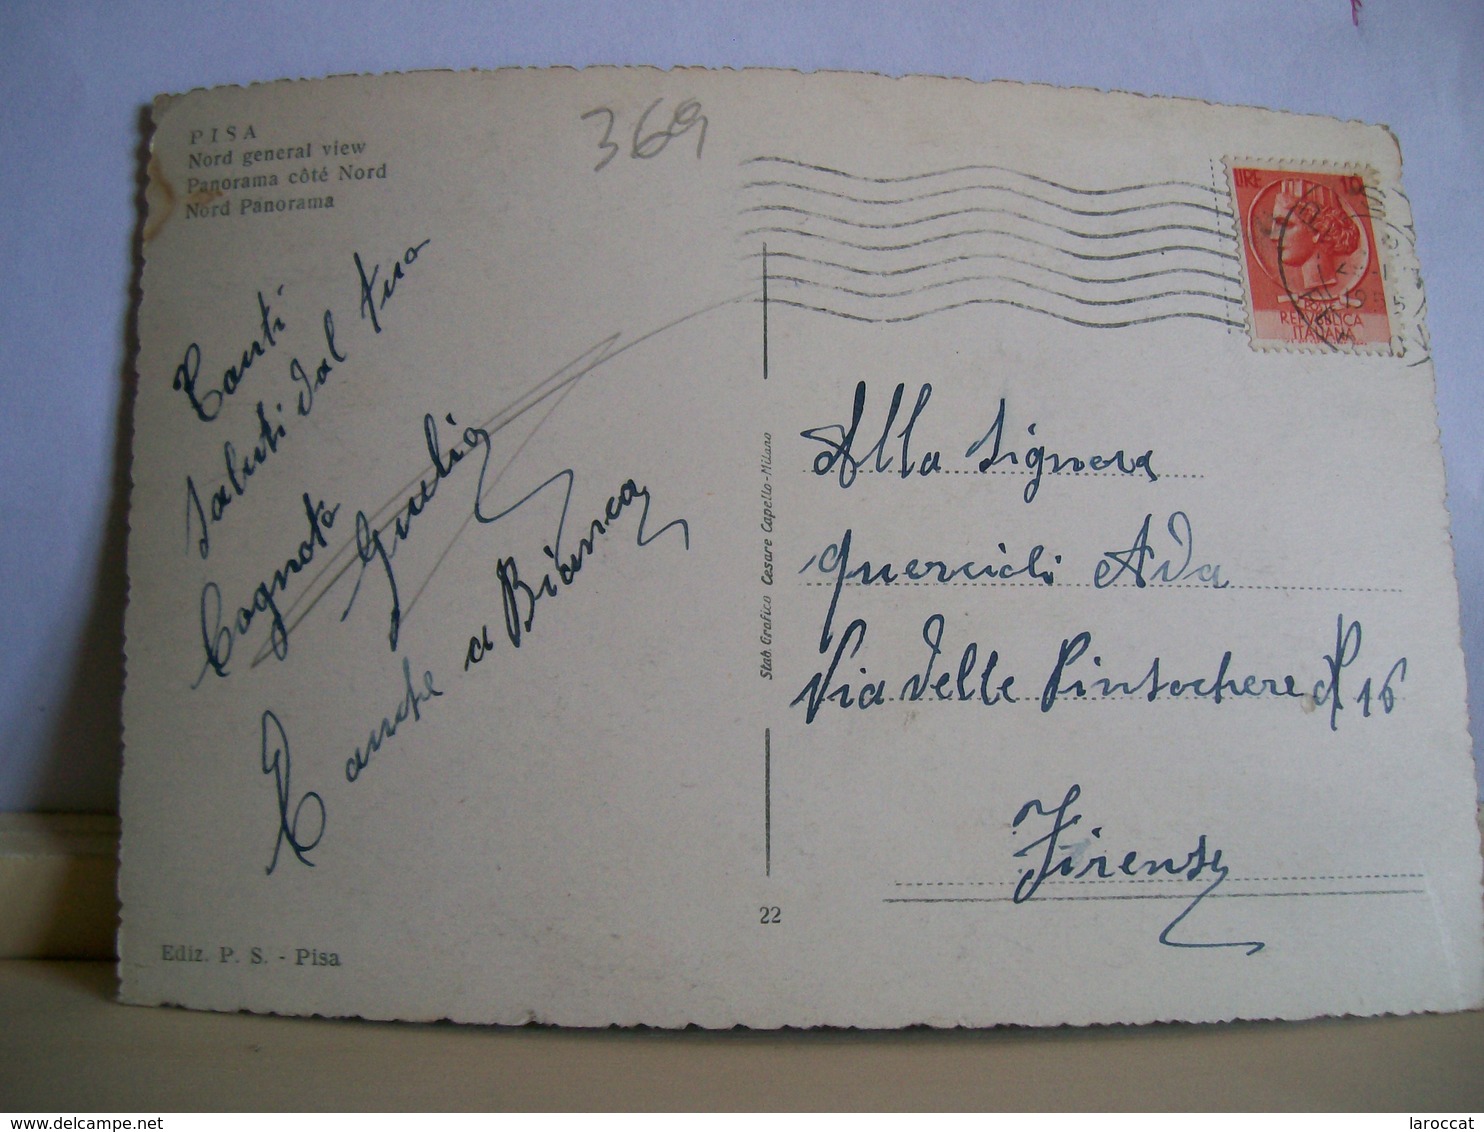 PISA
Nord general view
Panorama côté Nord
Nord Panorama
369
Tanti
saluti dal tuo
Cognato
Giulio
E anche a Bianca
Ediz. P. S. - Pisa
Stab. Grafico Cesare Capello - Milano
22
LIRE 10
POSTE
REPVBBLICA
ITALIANA
Alla Signora
Quercioli Ada
Via delle Pinsochere N 16
Firenze
delcampe.net
laroccat